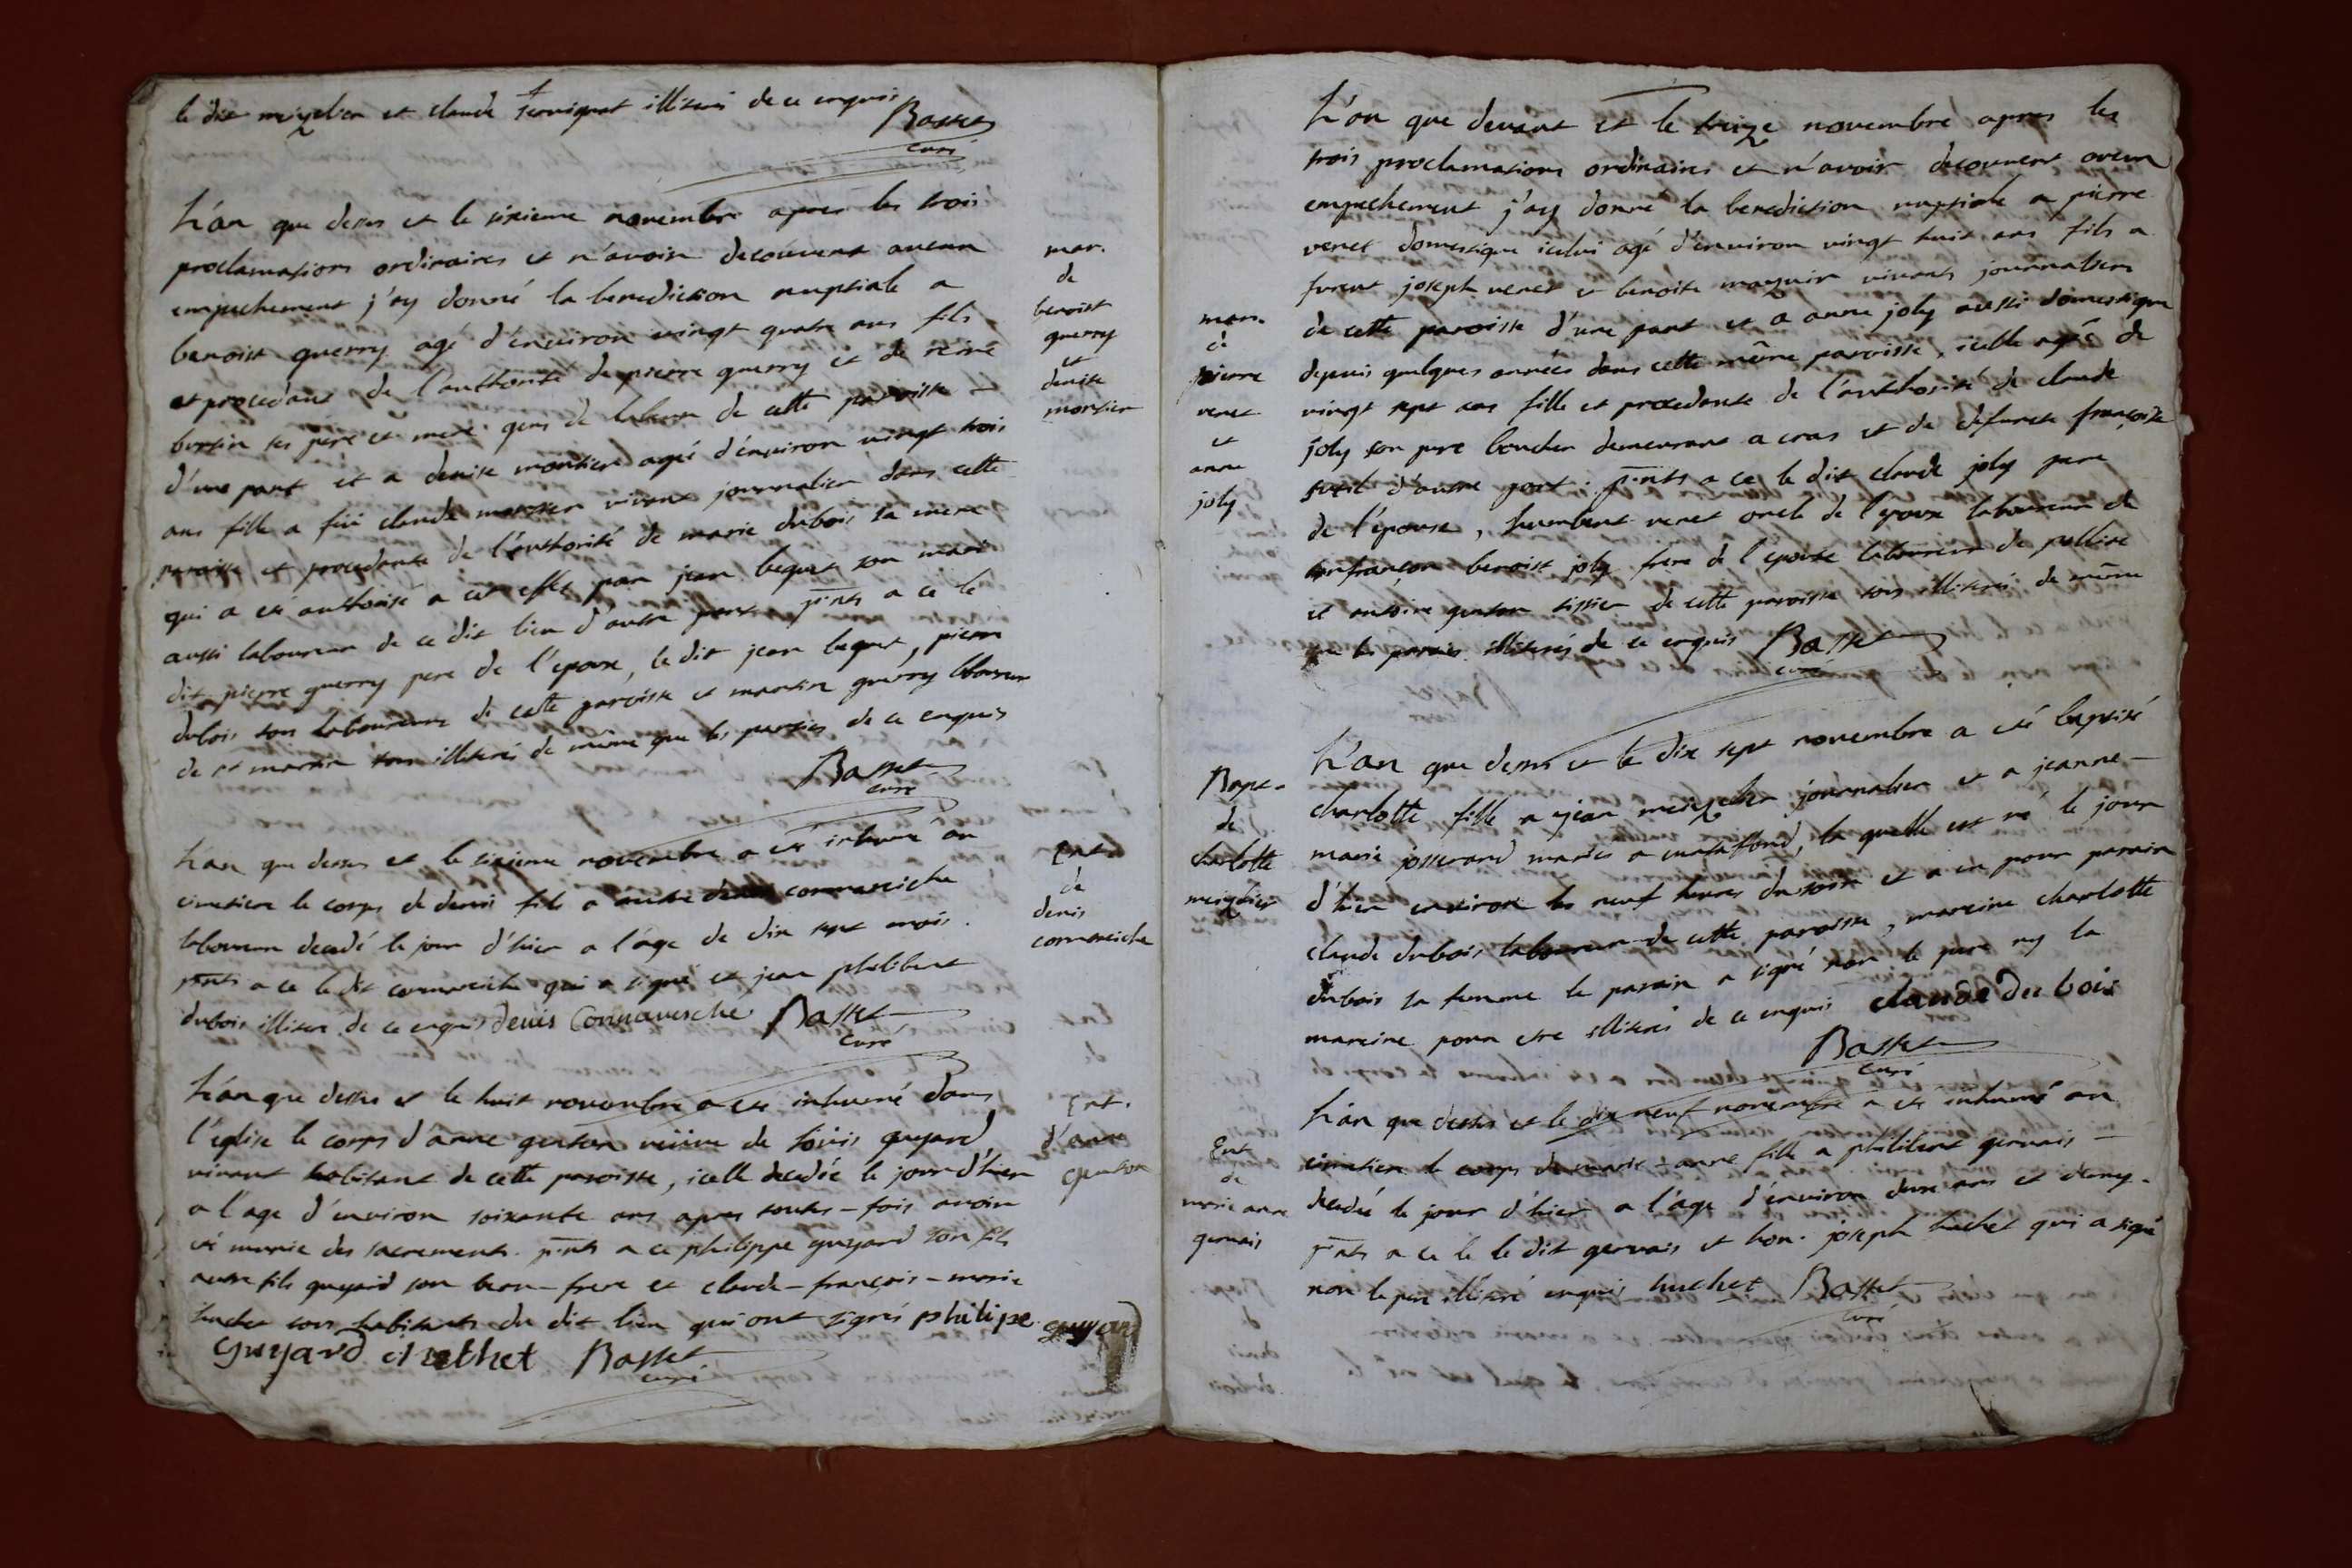 le dit meizelier et claude serviguat illiterés de ce enquis
Basset
curé
L'an que dessus et le sixieme novembre apres les trois
proclamations ordinaires et n'avoir decouvert aucun
empechement j'ay donné la benediction nuptiale a
benoist guerry agé d'environ vingt quatre ans fils
et procedant de l'authorité de pierre guerry et de reine
bertin ses pere et mere gens de labeur de cette paroisse
d'une part et a denise mortier agée d'environ vingt trois
ans fille a feu claude mortier vivant journalier dans cette
paroisse et procedante de l'authorité de marie dubois sa mere
qui a eté authorisé a cet effet par jean bequet son mari
aussi laboureur de ce dit lieu d'autre part p^nts a ce le
dit pierre guerry pere de l'epoux, le dit jean bequet, pierre
dubois tous laboureurs de cette paroisse et martin guerry laboureur
de st martin tous illiterés de même que les parties de ce enquis
Basset
curé
mar.
de
benoist
guerry
et
denise
mortier
L'an que dessus et le sixieme novembre a eté inhumé au
cimetiere le corps de denis fils a denis connaveiche
laboureur decedé le jour d'hier a l'âge de dix sept mois.
p^nts a ce le dit connaveiche qui a signé et jean philibert
dubois illiteré de ce enquis denis Connavesche Basset
curé
Ent.
de
denis
connaveiche
L'an que dessus et le huit novembre a eté inhumé dans
l'eglise le corps d'anne genton veüve de loüis guyard
vivant habitant de cette paroisse, icelle decedée le jour d'hier
a l'age d'environ soixante ans apres toutes-fois avoir
eté munie des sacrements. p^nts a ce philippe guyard son fils
autre fils guyard son beau-frere et claude-françois-marie
huchet tous habitants du dit lieu qui ont signés philipe guyard
guyard huchet Basset
curé
Ent.
d'anne
genton
L'an que devant et le treize novembre apres les
trois proclamations ordinaires et n'avoir decouvert aucun
empechement j'ay donné la benediction nuptiale a pierre
venet domestique icelui agé d'environ vingt huit ans fils a
furent joseph venet et benoite maznir vivants journaliers
de cette paroisse d'une part et a anne joly aussi domestique
depuis quelques années dans cette même paroisse, icelle agée de
vingt sept ans fille et procedante de l'authorité de claude
joly son pere boucher demeurant a cras et de defuncte françoise
sutil d'autre part: p^nts a ce le dit claude joly pere
de l'épouse, humbert venet oncle de l'epoux laboureur de
confrançon benoist joly frere de l'epouse laboureur de polliat
et antoine genton tissier de cette paroisse tous illiterés de même
que les parties illiterés de ce enquis Basset
curé
mar.
de
pierre
venet
et
anne
joly
L'an que dessus et le dix sept novembre a eté baptisé
charlotte fille a jean meizelier journalier et a jeanne-
marie josserand mariés a matafond, la quelle est né le jour
d'hier environ les neuf heures du soir et a eu pour parain
claude dubois laboureur de cette paroisse, mareine charlotte
dubois sa femme le parain a signé non le pere ny la
mareine pour etre illiterés de ce enquis claude du bois
Basset
curé
Bapt.
de
charlotte
meizelier
L'an que dessus et le dix neuf novembre a eté inhumé au
cimetiere le corps de marie-anne fille a philibert gervais
decedée le jour d'hier a l'age d'environ deux ans et demy.
p^nts a ce le le dit gervais et hon. joseph huchet qui a signé
non le pere illiteré enquis huchet Basset
curé
Ent.
de
marie anne
gervais